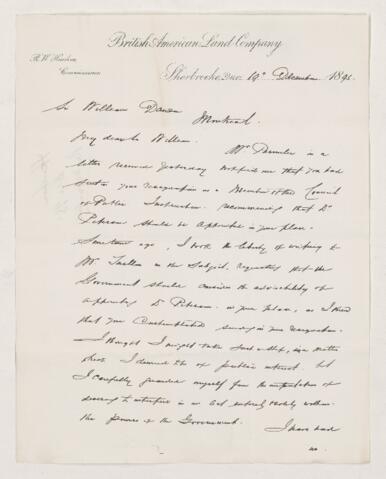 British American Land Company
R. W. Heneker,
Commissioner
Sherbrooke, Que. 19th December 1891
Sir William Dawson
Montreal.
My dear Sir William.
Mr in a
letter received yesterday me that you had
sent in your resignation as a Member of the Council
of Public Instruction recommending that Dr
Peterson should be appointed in your place.
Sometime ago, I took the liberty of writing to
Mr on the Subject, requesting that the
Government should consider the advisability of
appointing Dr Peterson in your place, as I heard
that you Contemplated sending in your resignation.
I thought I might take such a step, in a matter
which I deemed to be of public interest, but
I carefully guarded myself from the imputation of
desiring to interfere in an act entirely within
the powers of the Government.
I have had
no